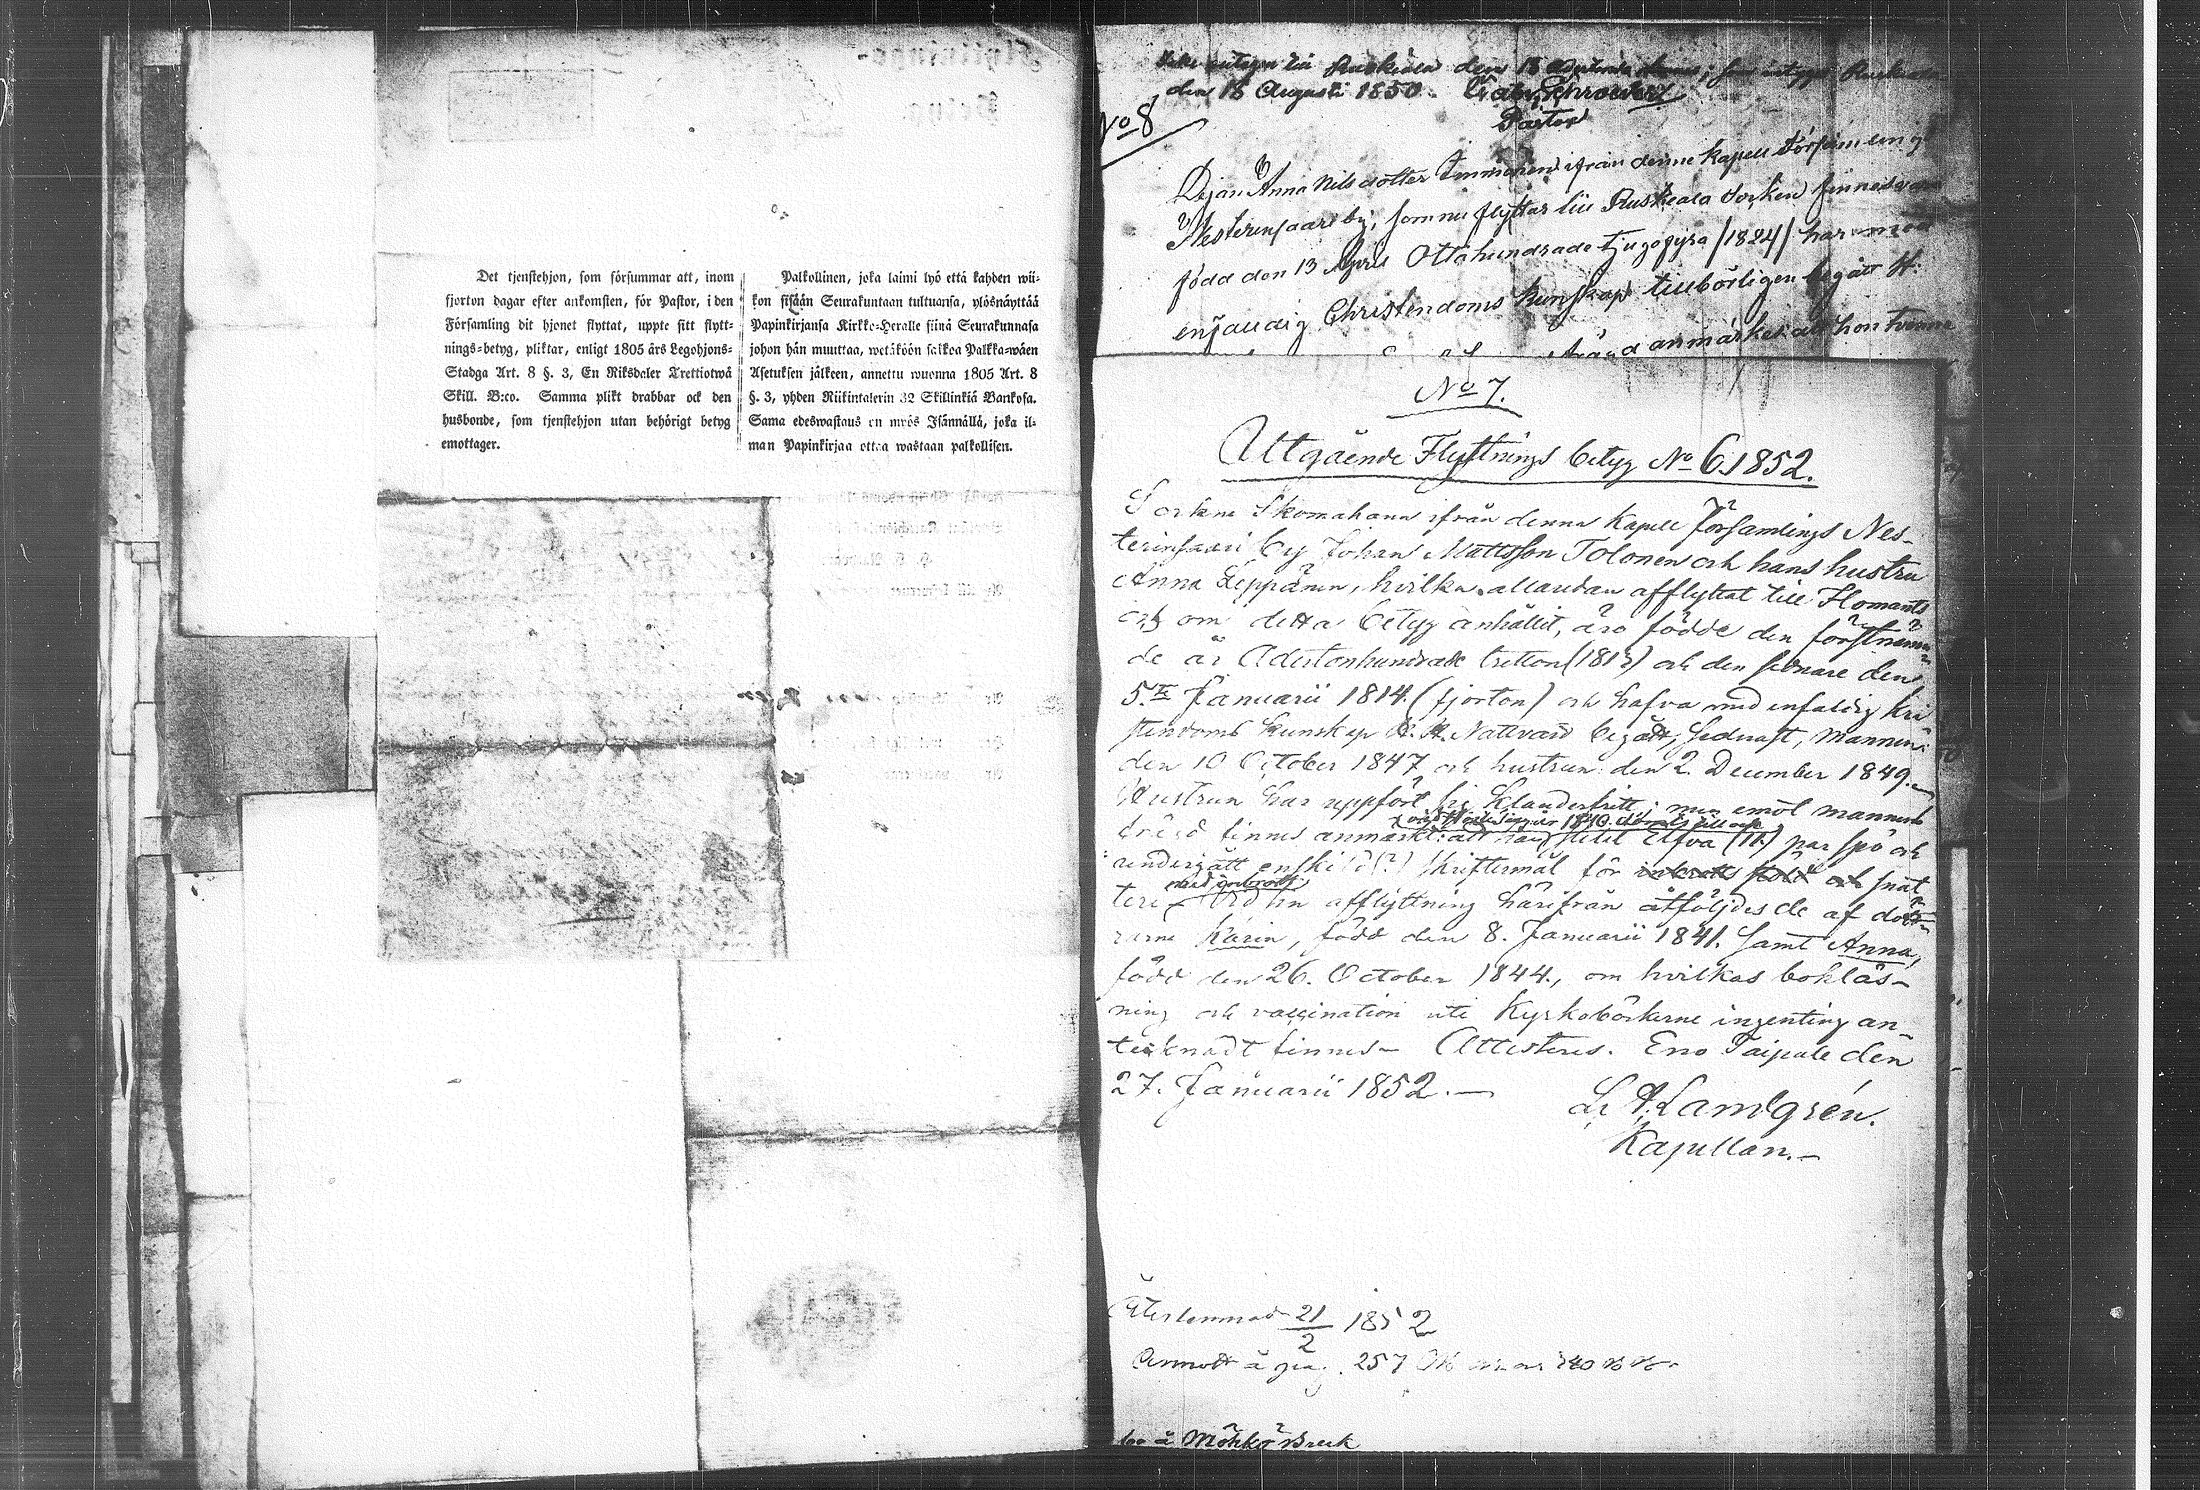 Det tjenstehjon, som försummar att, inom
fjorton dagar efter ankomsten, för Pastor, i den
Församling dit hjonet flyttat, uppte sitt flytt=
nings=betyg, pliktar, enligt 1805 års Legohjons=
Stadga Art. 8 §. 3, En Riksdaler Trettiotwå
Skill. B:co. Samma plikt drabbar ock den
husbonde, som tjenstehjon utan behörigt betyg
emottager.
Palkollinen, joka laimi lyö että kahden wii=
kon sisään Seurakuntaan tultuansa, ylösnäyttää
Papinkirjansa Kirkko=Heralle siinä Seurakunnasa
johon hän muuttaa, wetäköön saikoa Palkka=wäen
Asetuksen jälkeen, annettu wuonna 1805 Art. 8
§. 3, yhden Riikintalerin 32 Skillinkiä Bankosa.
Sama edeswastaus on myös Isännällä, joka il=
man Papinkirjaa ottaa wastaan palkollisen.
Ruskeala den 18
den 18 Augusti 1850.
Pastor
No 8
Pigan Anna Nilsdotter Immonen ifrån denne kapell Församling
Nesterinsaari by, som nu flyttar till Ruskeala Socken finnes vara
född den 13 April Ottahundrade tjugofyra /1824/ har med
enfaldig Christendoms kunskap tillbörligen begått H:
anmärkt: att hon
No 7.
Utgående Flyttnings betyg No 6. 1852.
Sockne Skomakaren ifrån denna Kapell Församlings Nes-
terinsaari by Johan Mattsson Tolonen och hans hustru
Anna Leppänen, hvilka allaredan afflyttat till Ilomants
och om detta betyg anhållit, äro födde den förstnämn-
de år Adertonhundrade tretton (1813) och den sednare den
5.te Januarii 1814. (fjorton) och hafva med enfaldig kri
stendoms kunskap H. H. Nattvard begått, sednast, mannen:
den 10 October 1847 och hustrun: den 2. December 1849.
Hustrun har uppfört sig klanderfritt; men emot mannens
frägd finnes anmärkt: att han slitit Elfva (11.) par spö och
undergått enskild (?) skriftermål för snat
teri. Vid sin afflyttning härifrån åtföljdes de af dött-
rarne Karin, född den 8. Januarii 1841. samt Anna,
född den 26. October 1844., om hvilkas bokläs-
ning och vaccination uti Kyrkoböckerne ingenting an-
tecknadt finnes - Attesteres. Eno Taipale den
27. Januarii 1852. —
L. A. Landgrén.
Kapellan. –
Återlemnad 21/2 1852
257
bor å Möhkö Bruk